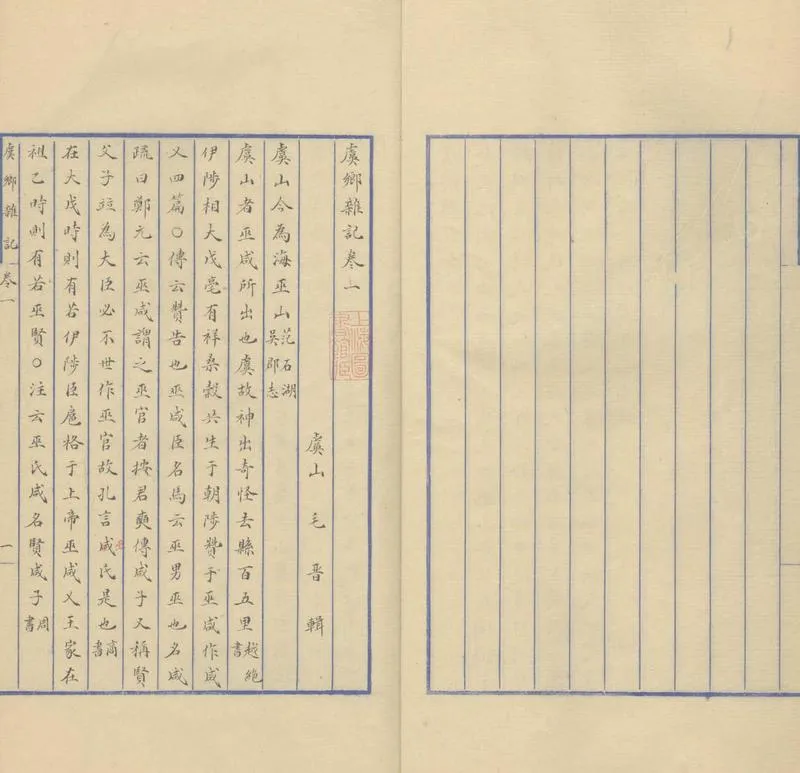 虞鄉雜記卷上
虞山毛晉輯
虞山今為海巫山范石湖吳郡志
虞山者巫咸所出也虞故神出奇怪去縣百五里越絕書
伊陟相大戊亳有祥桑穀共生于朝陟贊于巫咸作咸
乂四篇○傳云贊告也巫咸臣名馬云巫男巫也名咸
疏曰鄭元云巫咸謂之巫官者按君奭傳咸子又稱賢
父子竝為大臣必不世作巫官故孔言咸氏是也商書
在大戊時則有若伊陟臣扈格于上帝巫咸乂王家在
祖乙時則有若巫賢○注云巫氏咸名賢咸子周書
虞鄉雜記 卷一 一